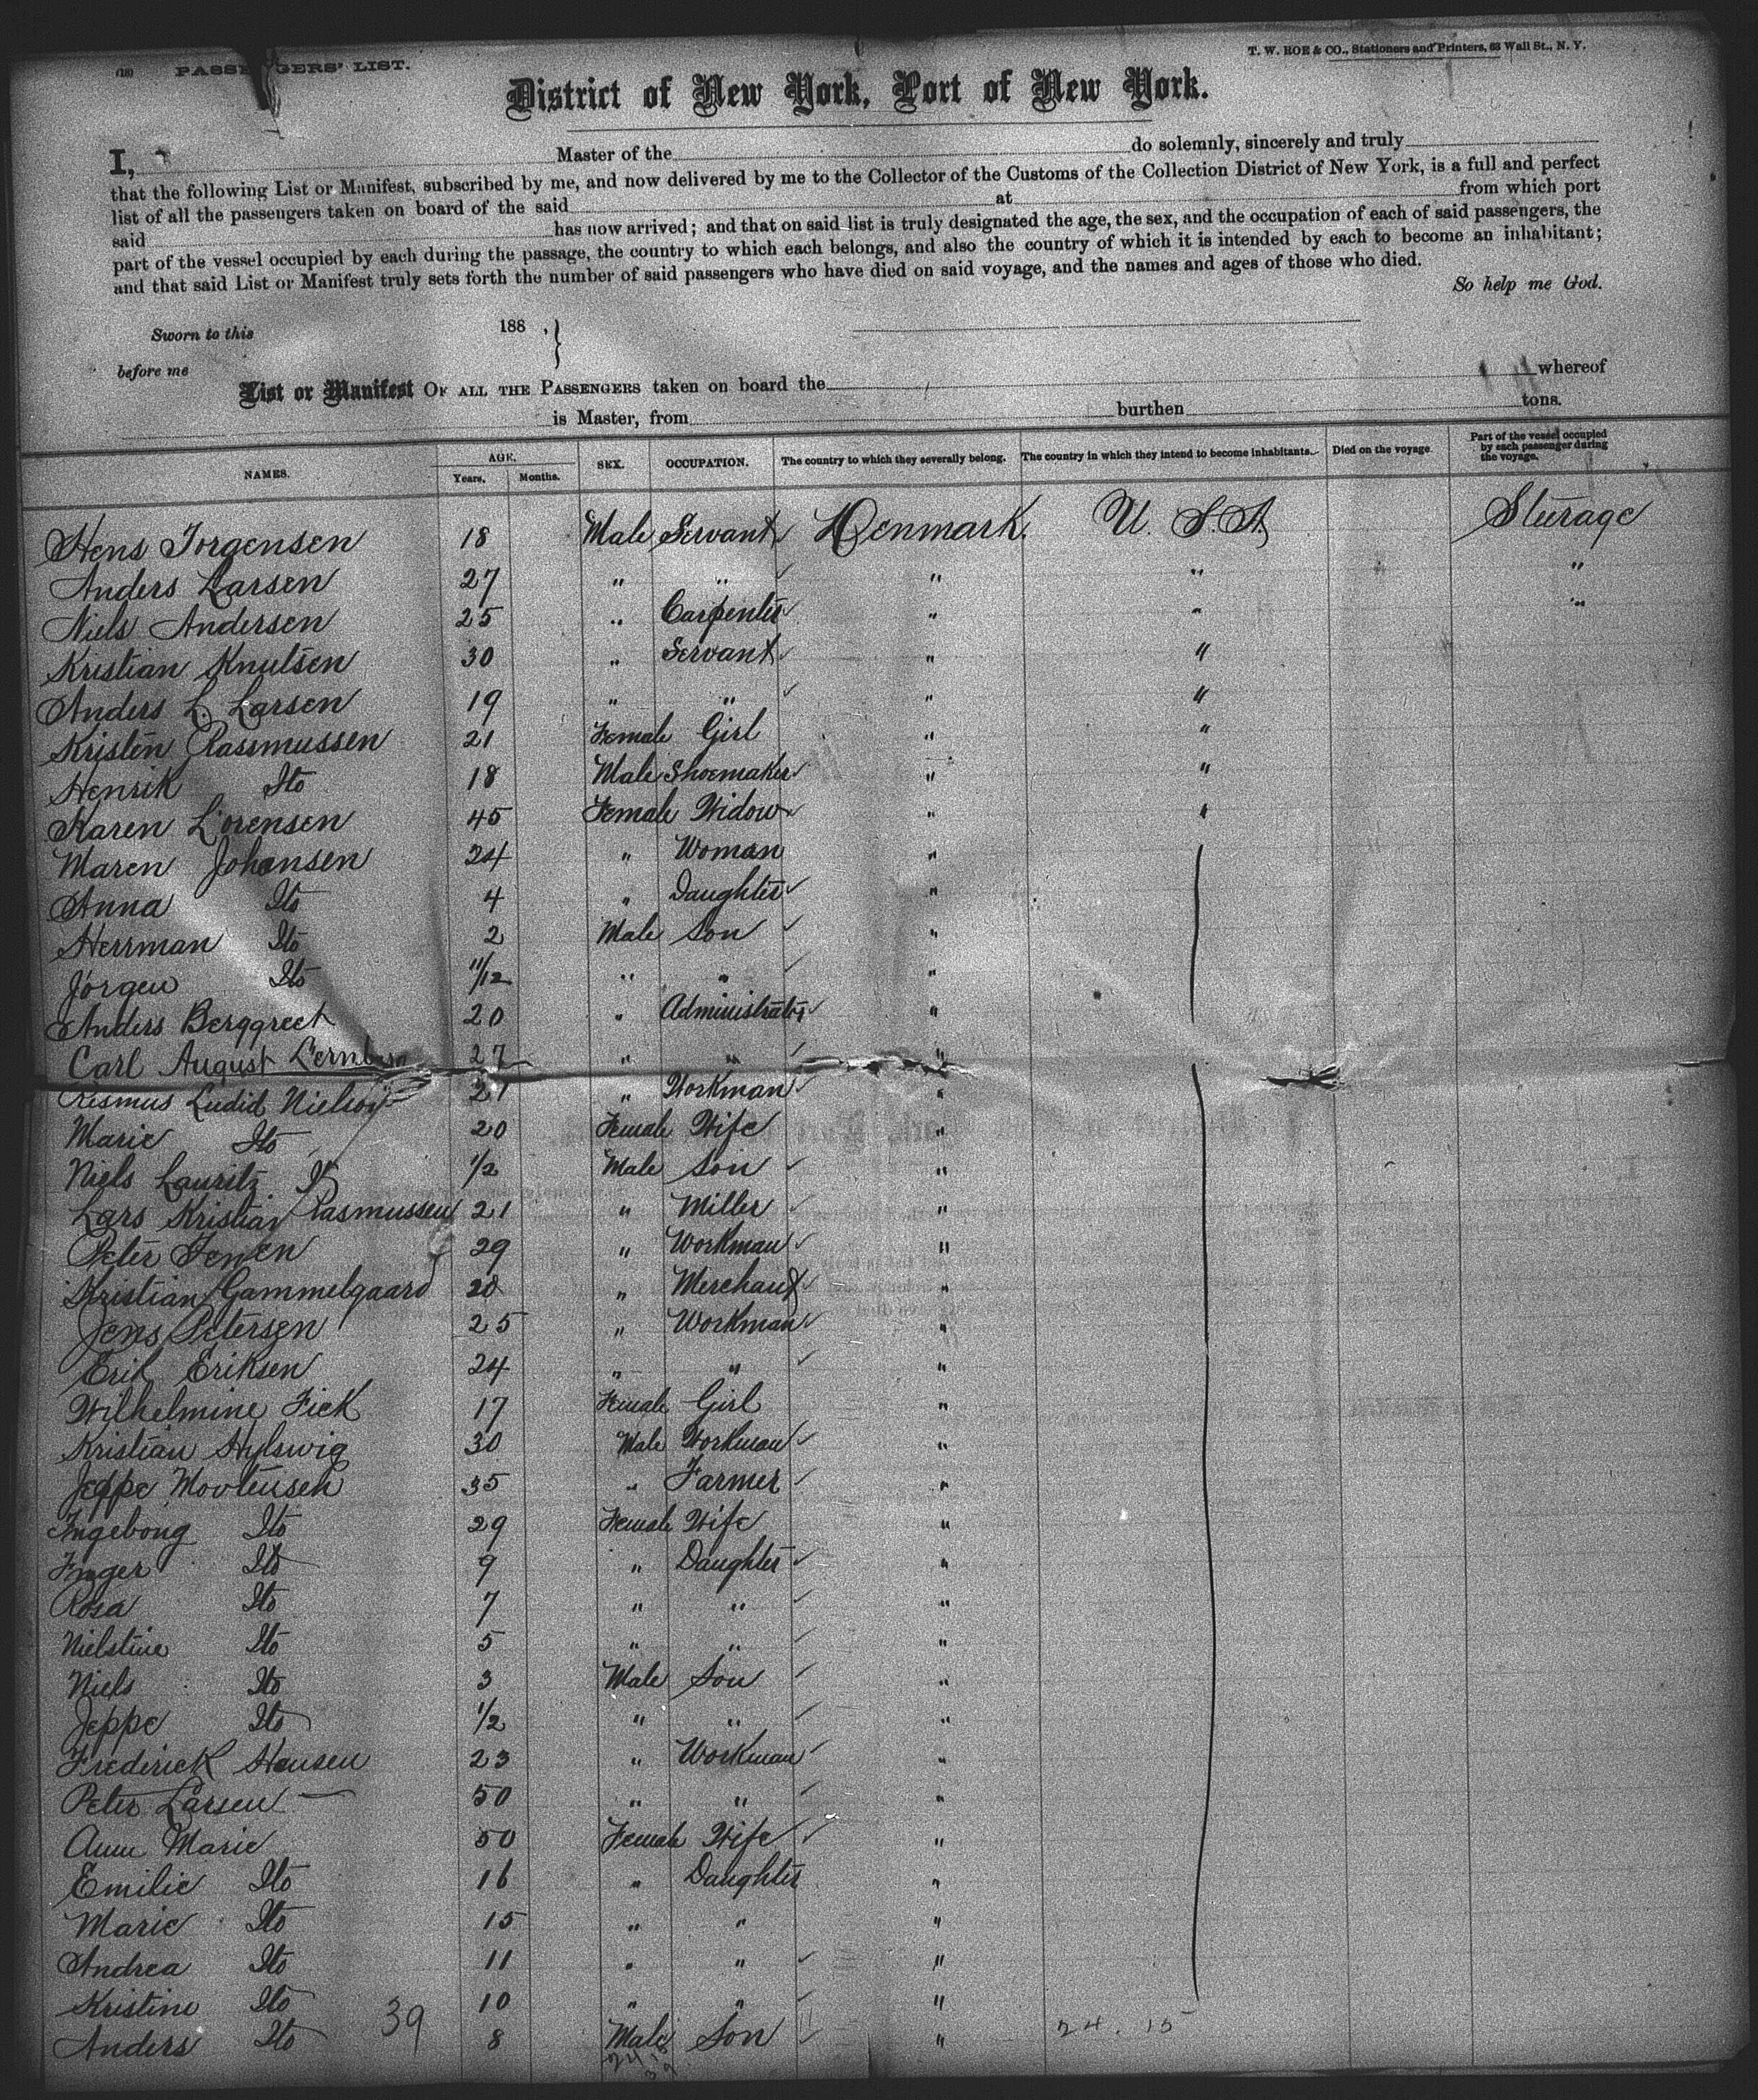 (18) PASSENGERS' LIST.
T. W. ROE & CO., Stationers and Printers, 63 Wall St., N. Y.
District of New York, Port of New York.
I, Master of the do solemnly, sincerely and truly
that the following List or Manifest, subscribed by me, and now delivered by me to the Collector of the Customs of the Collection District of New York, is a full and perfect
list of all the passengers taken on board of the said at from which port
said has now arrived; and that on said list is truly designated the age, the sex, and the occupation of each of said passengers, the
part of the vessel occupied by each during the passage, the country to which each belongs, and also the country of which it is intended by each to become an inhabitant;
and that said List or Manifest truly sets forth the number of said passengers who have died on said voyage, and the names and ages of those who died.
So help me God.
Sworn to this 188 , }
before me
List or Manifest OF ALL THE PASSENGERS taken on board the whereof
is Master, from burthen tons.
NAMES. AGE. Years. Months. SEX. OCCUPATION. The country to which they severally belong. The country in which they intend to become inhabitants. Died on the voyage. Part of the vessel occupied by each passenger during the voyage.
Hens Jorgensen 18 Male Servant Denmark U. S. A. Steerage
Anders Larsen 27 " " " " "
Niels Andersen 25 " Carpenter " " "
Kristian Knutsen 30 " Servant " "
Anders L. Larsen 19 " " " "
Kristen Rassmussen 21 Female Girl " "
Henrik Do 18 Male Shoemaker " "
Karen Lorensen 45 Female Widow " "
Maren Johansen 24 " Woman "
Anna Do 4 " Daughter "
Herrman Do 2 Male Son "
Jorgen Do 11/12 " " "
Anders Berggreet 20 " Administrator "
Carl August 27 " " "
Rasmus Ludid Nielson 21 " Workman "
Marie Do 20 Female Wife "
Niels Lauritz Do 1/2 Male Son "
Lars Kristian Rasmussen 21 " Miller "
Peter Jensen 29 " Workman "
Kristian Gammelgaard 28 " Merchant "
Jens Petersen 25 " Workman "
Erik Eriksen 24 " " "
Wilhelmine Fick 17 Female Girl "
Kristian Hylswig 30 Male Workman "
Jeppe Mortensen 35 " Farmer "
Ingebong Do 29 Female Wife "
Inger Do 9 " Daughter "
Rosa Do 7 " " "
Nielstine Do 5 " " "
Niels Do 3 Male Son "
Jeppe Do 1/2 " " "
Frederick Hansen 23 " Workman "
Peter Larsen 50 " " "
Ann Marie 50 Female Wife "
Emilie Do 16 " Daughter "
Marie Do 15 " " "
Andrea Do 11 " " "
Kristine Do 10 " " "
Anders Do 39 8 Male Son " 24. 15